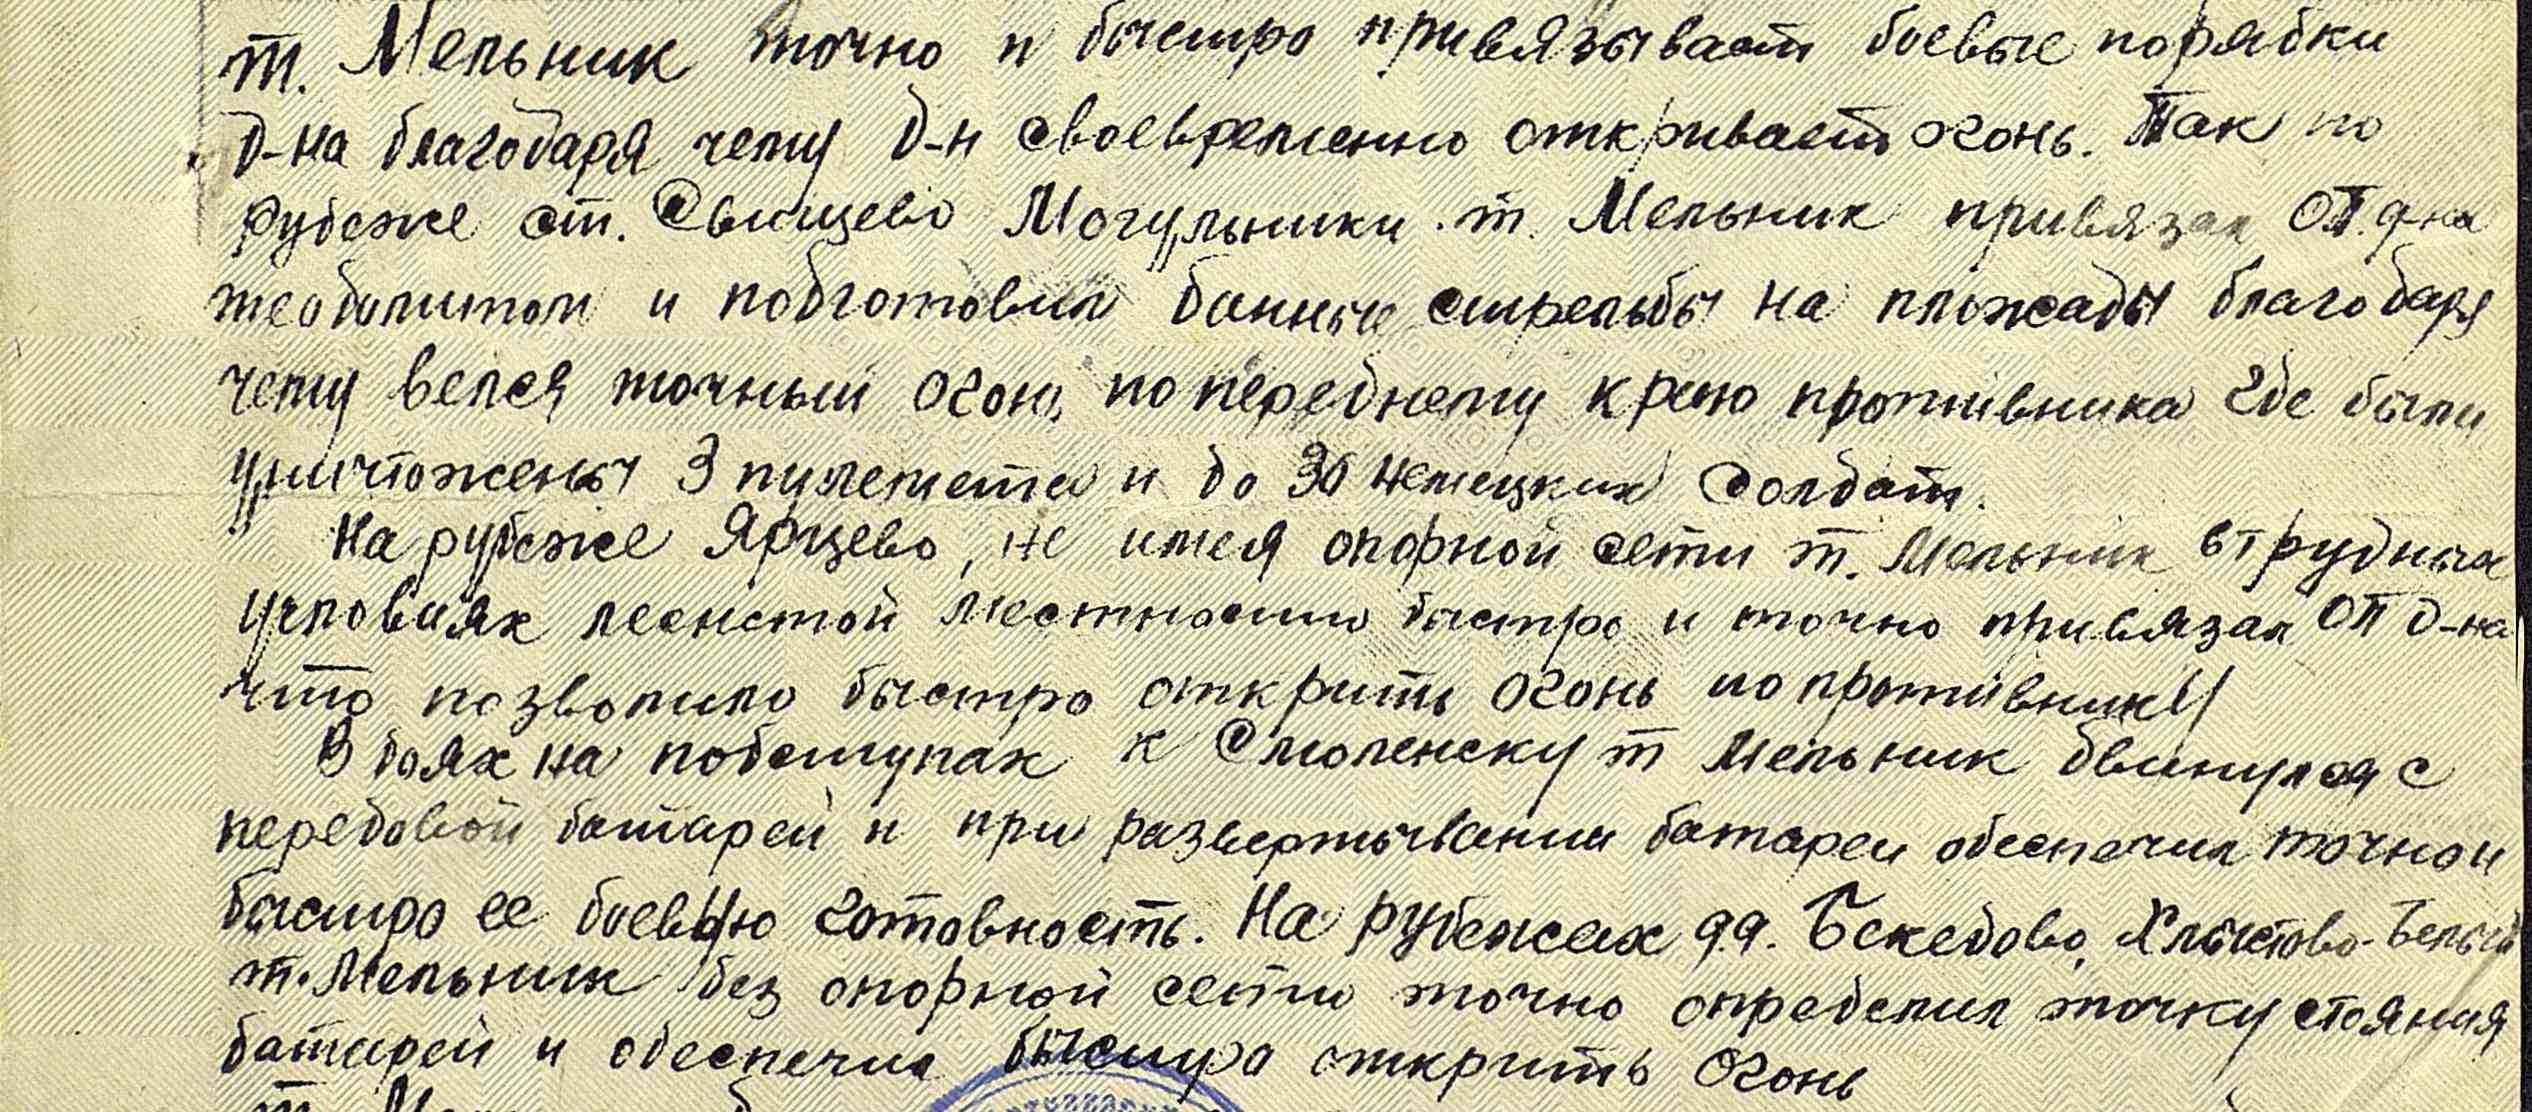 т. Мельник точно и быстро привязывает боевые порядки
д-на благодаря чему д-н своевременно откривает огонь. Так по
рубеже ст. Свищево Могульники т. Мельник привязал ОП д-на
теодолитом и подготовил данные стрельбы на площады благодаря
чему велся точный огонь по переднему краю противника где были
уничтожены 3 пулемета и до 30 немецких солдат.
На рубеже Ярцево, не имея опорной сети т. Мельник в трудных
условиях лесистой местности быстро и точно привязал ОП д-на
что позволило быстро открить огонь по противнику
В боях на подступах к Смоленску т Мельник двинулся с
передовой батареи и при развертывании батареи обеспечил точно и
быстро ее боевую готовность. На рубежах д.д. Бекедово, Белый
т. Мельник без опорной сети точно определил точку стояния
батареи и обеспечил быстро открить огонь